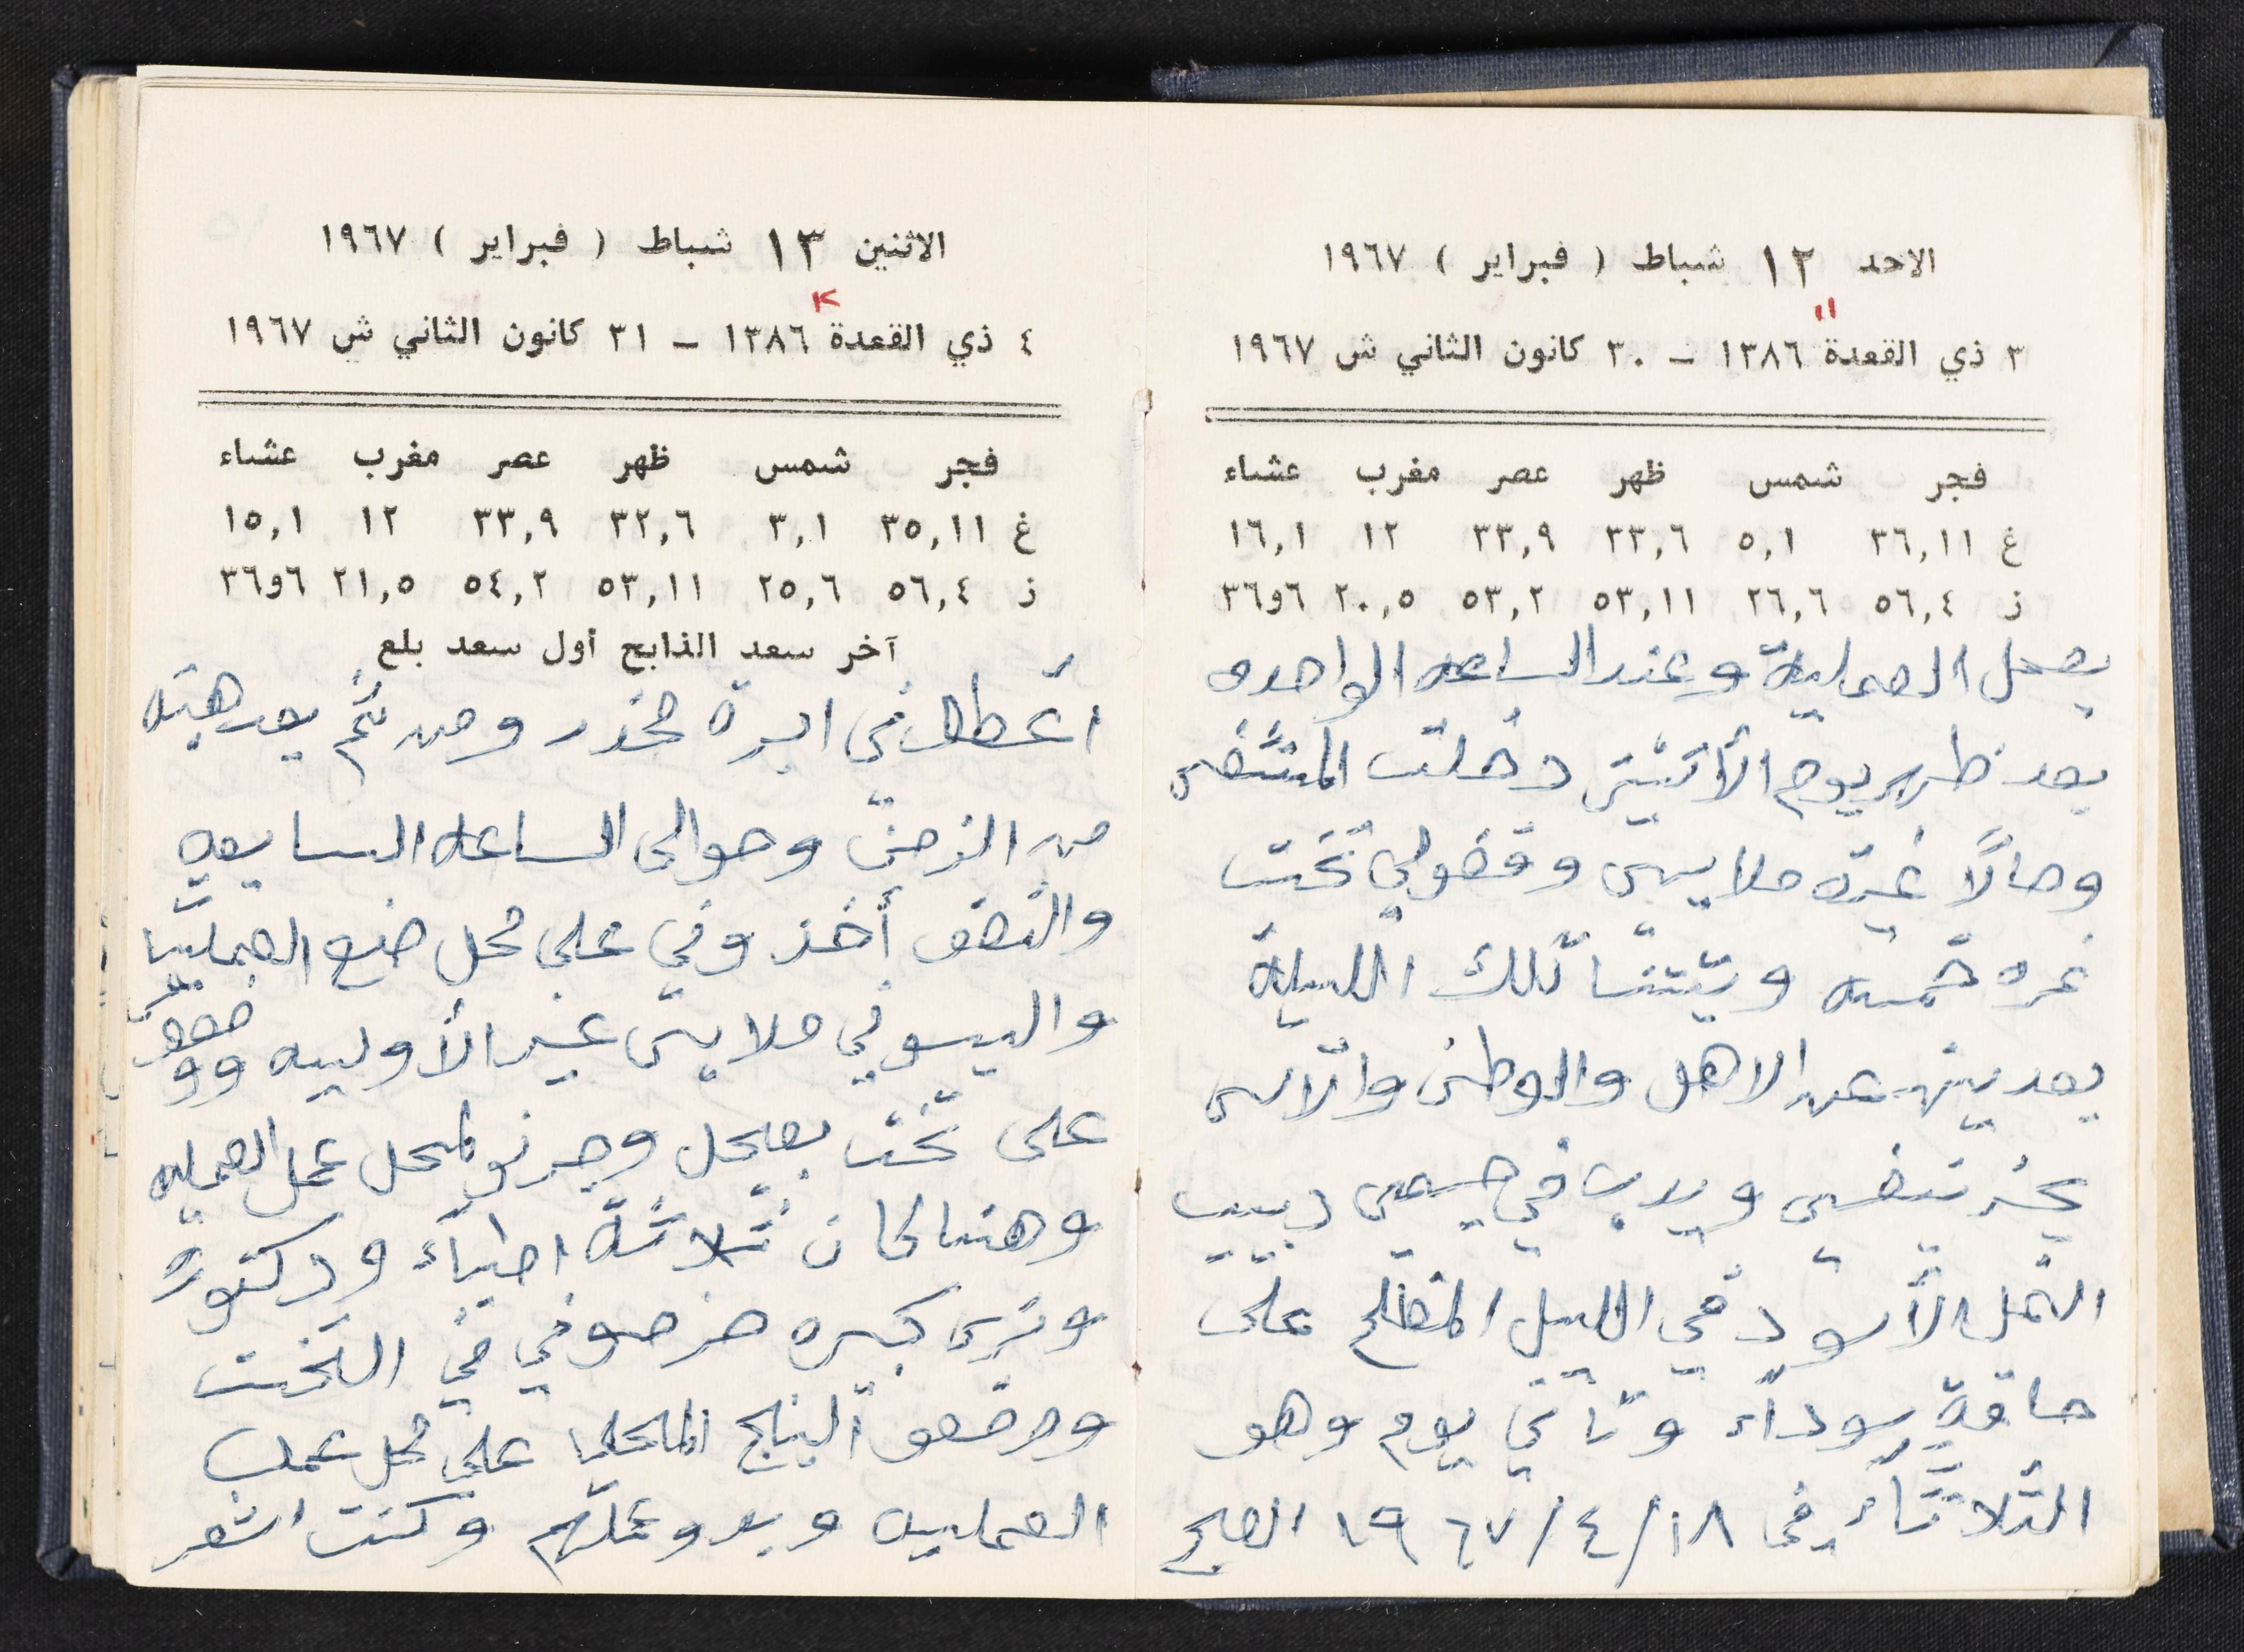 الاحد ١٢ شباط ( فبراير ) ١٩٦٧
١١
٣ ذي القعدة ١٣٨٦ – ٣٠ كانون الثاني ش ١٩٦٧
فجر شمس ظهر عصر مغرب عشاء
غ ٣٦,١١ ٥,١ ٣٣,٦ ٣٣,٩ ١٢ ١٦,١
ز ٥٦,٤ ٢٦,٦ ٥٣,١١ ٥٣,٢ ٢٠,٥ ٦و٣٦
بعمل العملية وعند الساعه الواحده
بعد ظهر يوم الأثنين دخلت المستشفى
وحالًا غيرّه ملابسي وقضولي تخت
نمره خمسه وبتنا تلك الليلة
بعدين عن الاهل والوطن والألاسى
يحز بنفسي ويدب في جسمي دبيب
النمل الأسود في الليل المظلم على
حافةٍ سوداء وثاني يوم وهو
الثلاثاء في ١٨/٤/١٩٦٧ الصبح
الاثنين ١٣ شباط ( فبراير ) ١٩٦٧
٤ ذي القعدة ١٣٨٦ – ٣١ كانون الثاني ش ١٩٦٧
فجر شمس ظهر عصر مغرب عشاء
غ ٣٥,١١ ٣,١ ٣٢,٦ ٣٣,٩ ١٢ ١٥,١
ز ٥٦,٤ ٢٥,٦ ٥٣,١١ ٥٤,٢ ٢١,٥ ٦و٣٦
آخر سعد الذابح أول سعد بلع
اعطوني ابرة مخدر ومن ثم بعد هنيه
من الزمن وحوالي الساعه السابعه
والنصف أخذوني على محل صنع العمليا
والبسوني ملابس غير الأوليه ووضعو
على تخت بعجل وجرنو لمحل عمل العمليه
وهنا كان ثلاثة اطباء ودكتورة
كبيره في التخت
ووضعو البنج المحلي على محل عمل
العمليه وبدو عملهم وكنت اشعر